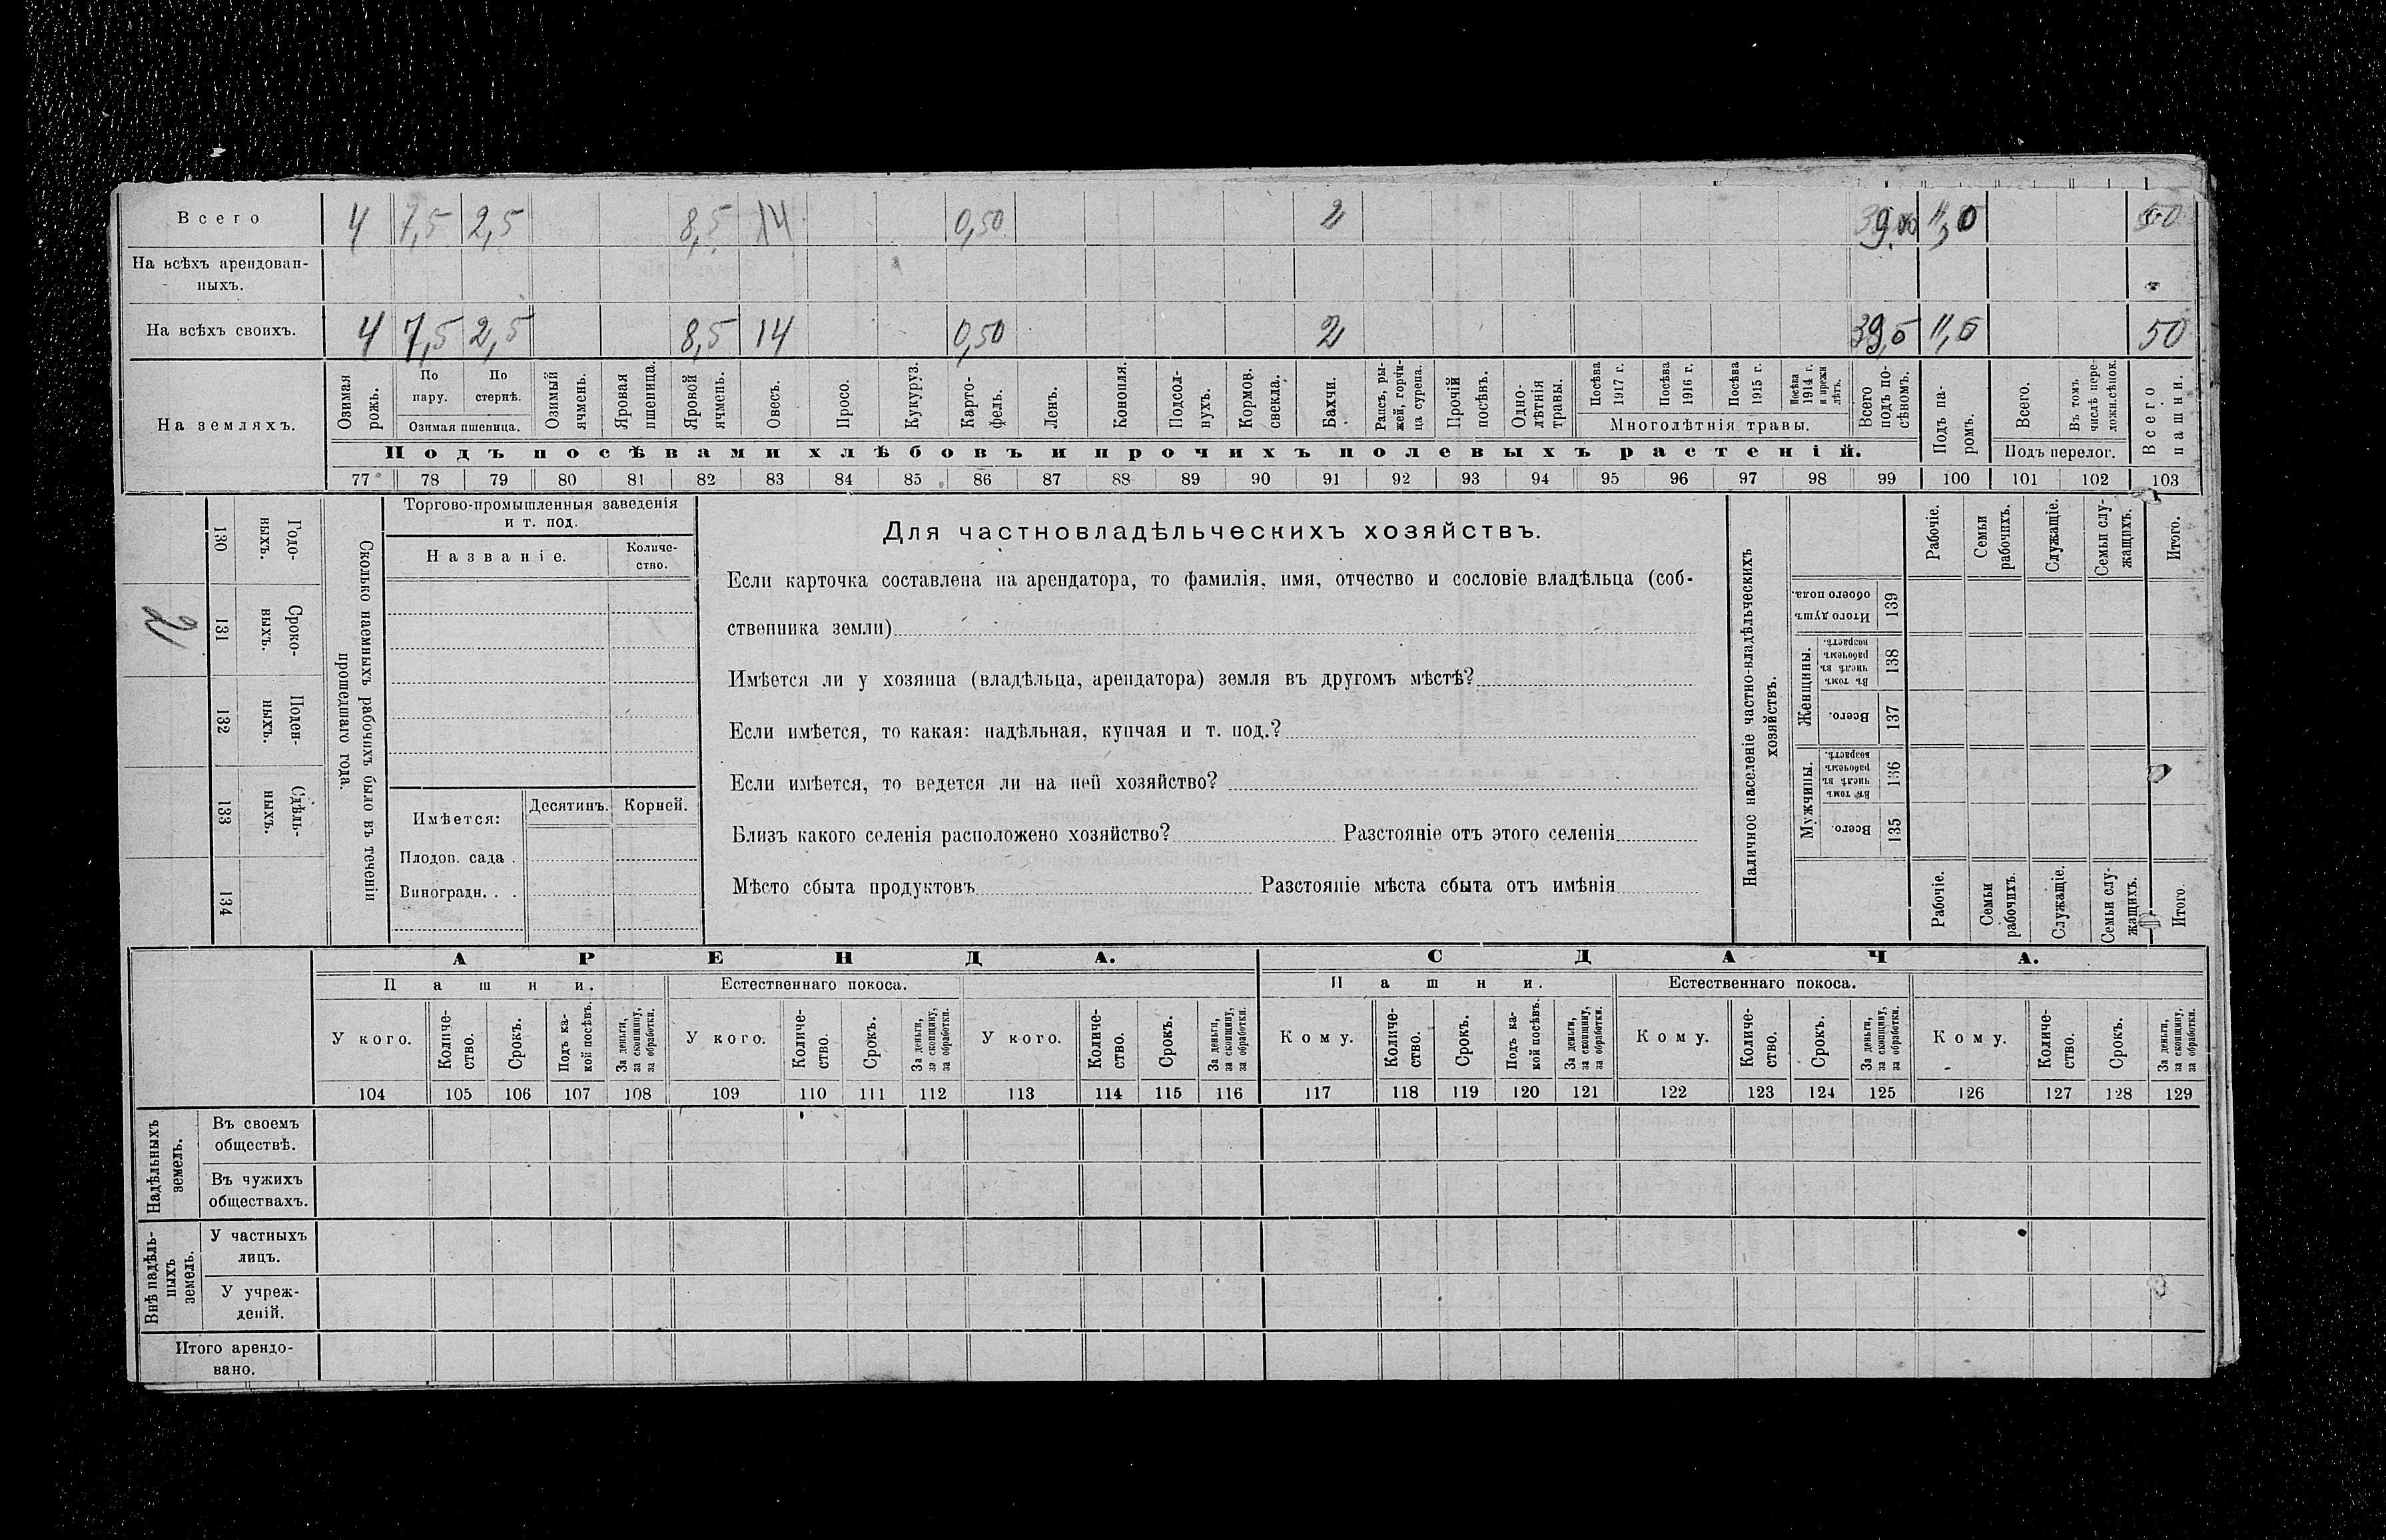 Всего 4 7,5 2,5 8,5 14 0,50 2 11,0 50
На всѣхъ арендован-
ныхъ.
На всѣхъ своихъ. 4 7,5 2,5 8,5 14 0,50 2 39,5 11,0 50
На земляхъ.
Озимая рожь.
По пару.
По стернѣ.
Озимая пшеница.
Озимый ячмень.
Яровая пшеница.
Яровой ячмень.
Овесъ.
Просо.
Кукуруз.
Карто-
фель.
Ленъ.
Конопля.
Подсол-
нухъ.
Кормов.
свекла.
Бахчи.
Рапсъ, ры-
жей, горчи-
ца сурепа.
Прочій посѣвъ.
Одно-
лѣтнія травы.
Посѣва 1917 г.
Посѣва 1916 г.
Посѣва 1915 г.
Посѣва 1914 г. и прежн лѣтъ.
Многолѣтнія травы.
Всего подъ по-
сѣвомъ.
Подъ посѣвами хлѣбовъ и прочихъ полевыхъ растеній.
Подъ па-
ромъ.
Всего.
Въ томъ числѣ пере-
ложн.сѣнок.
Подъ перелог.
Всего пашни.
77 78 79 80 81 82 83 84 85 86 87 88 89 90 91 92 93 94 95 96 97 98 99 100 101 102 103
Годо-
выхъ.
130
Сроко-
выхъ.
131
2
Поден-
ныхъ.
132
Сдѣль-
ныхъ.
133
134
Сколько наемныхъ рабочихъ было въ теченіи
прошедшаго года.
Торгово-промышленныя заведенія
и т. под.
Названіе.
Количе-
ство.
Имѣется:
Десятинъ.
Корней.
Плодов. сада .
Виноградн. . .
Для частновладѣльческихъ хозяйствъ.
Если карточка составлена на арендатора, то фамилія, имя, отчество и сословіе владѣльца (соб-
ственника земли)
Имѣется ли у хозяина (владѣльца, арендатора) земля въ другомъ мѣстѣ?
Если имѣется, то какая: надѣльная, купчая и т. под.?
Если имѣется, то ведется ли на ней хозяйство?
Близъ какого селенія расположено хозяйство? Разстояніе отъ этого селенія
Мѣсто сбыта продуктовъ Разстояніе мѣста сбыта отъ имѣнія
Наличное населеніе частно-владѣльческихъ
хозяйствъ.
Рабочіе.
Семьи рабочихъ.
Служащіе.
Семьи слу-
жащихъ.
Итого.
Итого душъ обоего пола.
139
Женщины.
Въ томъ числѣ въ рабочемъ возрастѣ.
138
Всего.
137
Мужчины.
Въ томъ числѣ въ рабочемъ возрастѣ.
136
Всего.
135
Рабочіе.
Семьи рабочихъ.
Служащіе.
Семьи слу-
жащихъ.
Итого.
АРЕНДА.
СДАЧА.
Пашни.
Естественнаго покоса.
Пашни.
Естественнаго покоса.
У кого.
Количе-
ство.
Срокъ.
Подъ ка-
кой посѣвъ.
За деньги,
за скопщину,
за обработки.
У кого.
Количе-
ство.
Срокъ.
За деньги,
за скопщину,
за обработки.
У кого.
Количе-
ство.
Срокъ.
За деньги,
за скопщину,
за обработки.
Кому.
Количе-
ство.
Срокъ.
Подъ ка-
кой посѣвъ.
За деньги,
за скопщину,
за обработки.
Кому.
Количе-
ство.
Срокъ.
За деньги,
за скопщину,
за обработки.
Кому.
Количе-
ство.
Срокъ.
За деньги,
за скопщину,
за обработки.
104 105 106 107 108 109 110 111 112 113 114 115 116 117 118 119 120 121 122 123 124 125 126 127 128 129
Надѣльныхъ
земель.
Въ своемъ
обществѣ.
Въ чужихъ
обществахъ.
Внѣ надѣль-
ныхъ
земель.
У частныхъ
лицъ.
У учреж-
деній.
Итого арендо-
вано.